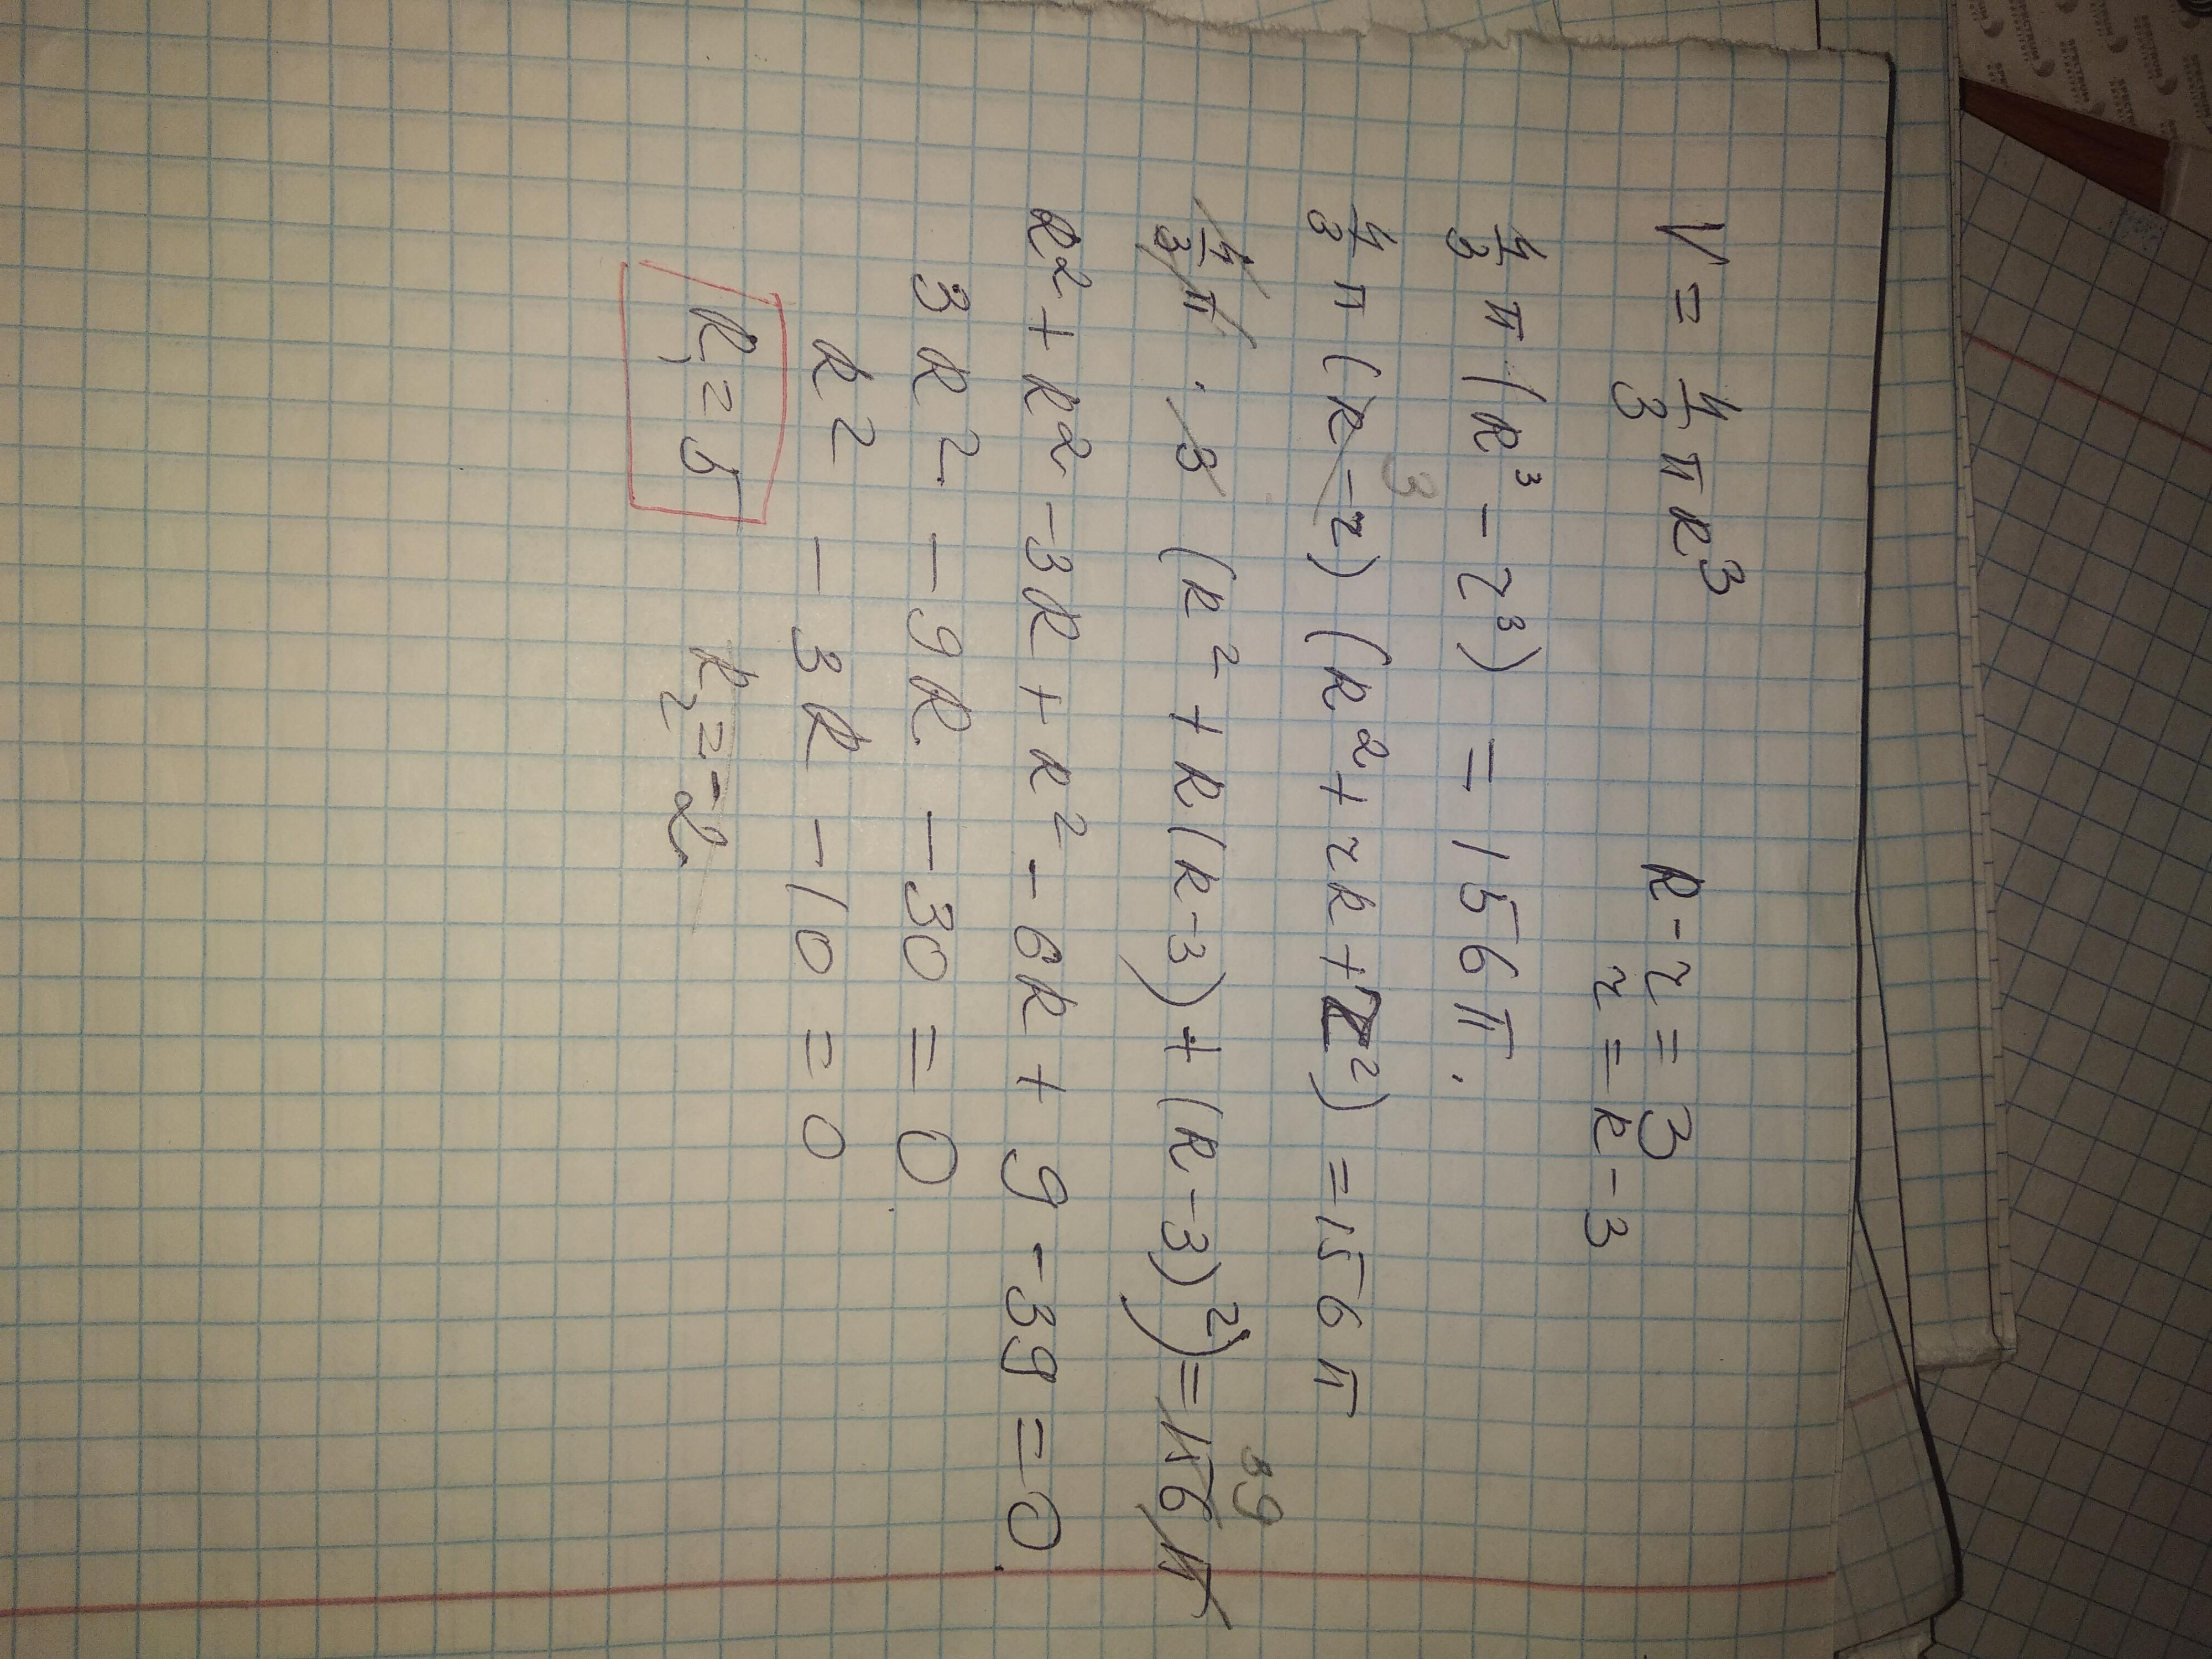 V = 4/3 π R³ R - r = 3
r = R - 3
4/3 π (R³ - r³) = 156 π.
3
4/3 π (R - r) (R² + rR + r²) = 156 π
39
4/3 π · 3 (R² + R(R-3) + (R-3)²) = 156 π
R² + R² - 3R + R² - 6R + 9 - 39 = 0.
3R² - 9R - 30 = 0
R² - 3R - 10 = 0
R₁ = 5 R₂ = -2